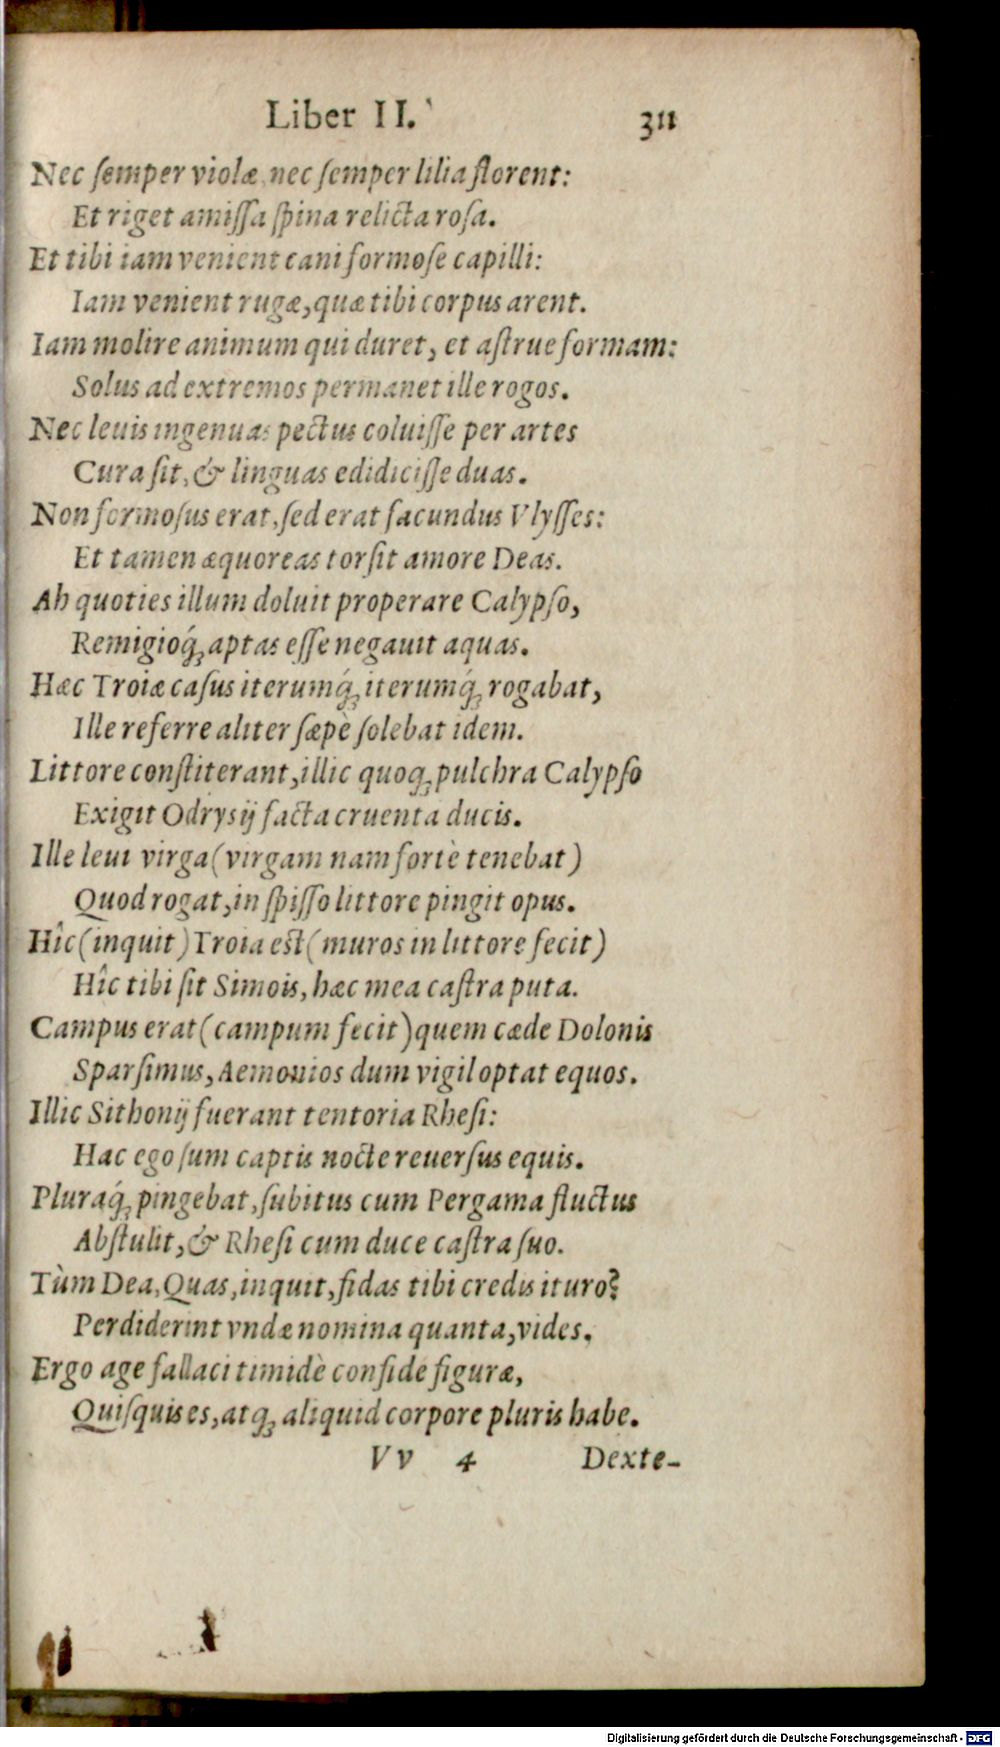 Liber II. 311
Nec ſemper violæ nec ſemper lilia florent:
Et riget amiſſa ſpina relicta roſa.
Et tibi iam venient cani formoſe capilli:
Iam venient rugæ, quæ tibi corpus arent.
Iam molire animum qui duret, et aſtrue formam:
Solus ad extremos permanet ille rogos.
Nec leuis ingenuas pectus coluiſſe per artes
Cura ſit, & linguas edidiciſſe duas.
Non formoſus erat, ſed erat facundus Vlyſſes:
Et tamen æquoreas torſit amore Deas.
Ah quoties illum doluit properare Calypſo,
Remigioq́; aptas eſſe negauit aquas.
Hæc Troiæ caſus iterumq́; iterumq́; rogabat,
Ille referre aliter ſæpè ſolebat idem.
Littore conſtiterant, illic quoq; pulchra Calypſo
Exigit Odrysij facta cruenta ducis.
Ille leui virga (virgam nam fortè tenebat)
Quod rogat, in ſpiſſo littore pingit opus.
Hîc (inquit) Troia est (muros in littore fecit)
Hîc tibi ſit Simois, hæc mea caſtra puta.
Campus erat (campum fecit) quem cæde Dolonis
Sparſimus, Aemonios dum vigil optat equos.
Illic Sithonij fuerant tentoria Rheſi:
Hac ego ſum captis nocte reuerſus equis.
Pluraq́; pingebat, ſubitus cum Pergama fluctus
Abſtulit, & Rheſi cum duce caſtra ſuo.
Tùm Dea, Quas, inquit, fidas tibi credis ituro?
Perdiderint vndæ nomina quanta, vides.
Ergo age fallaci timidè confide figuræ,
Quiſquis es, atq; aliquid corpore pluris habe.
Vv 4 Dexte-
Digitalisierung gefördert durch die Deutsche Forschungsgemeinschaft - DFG